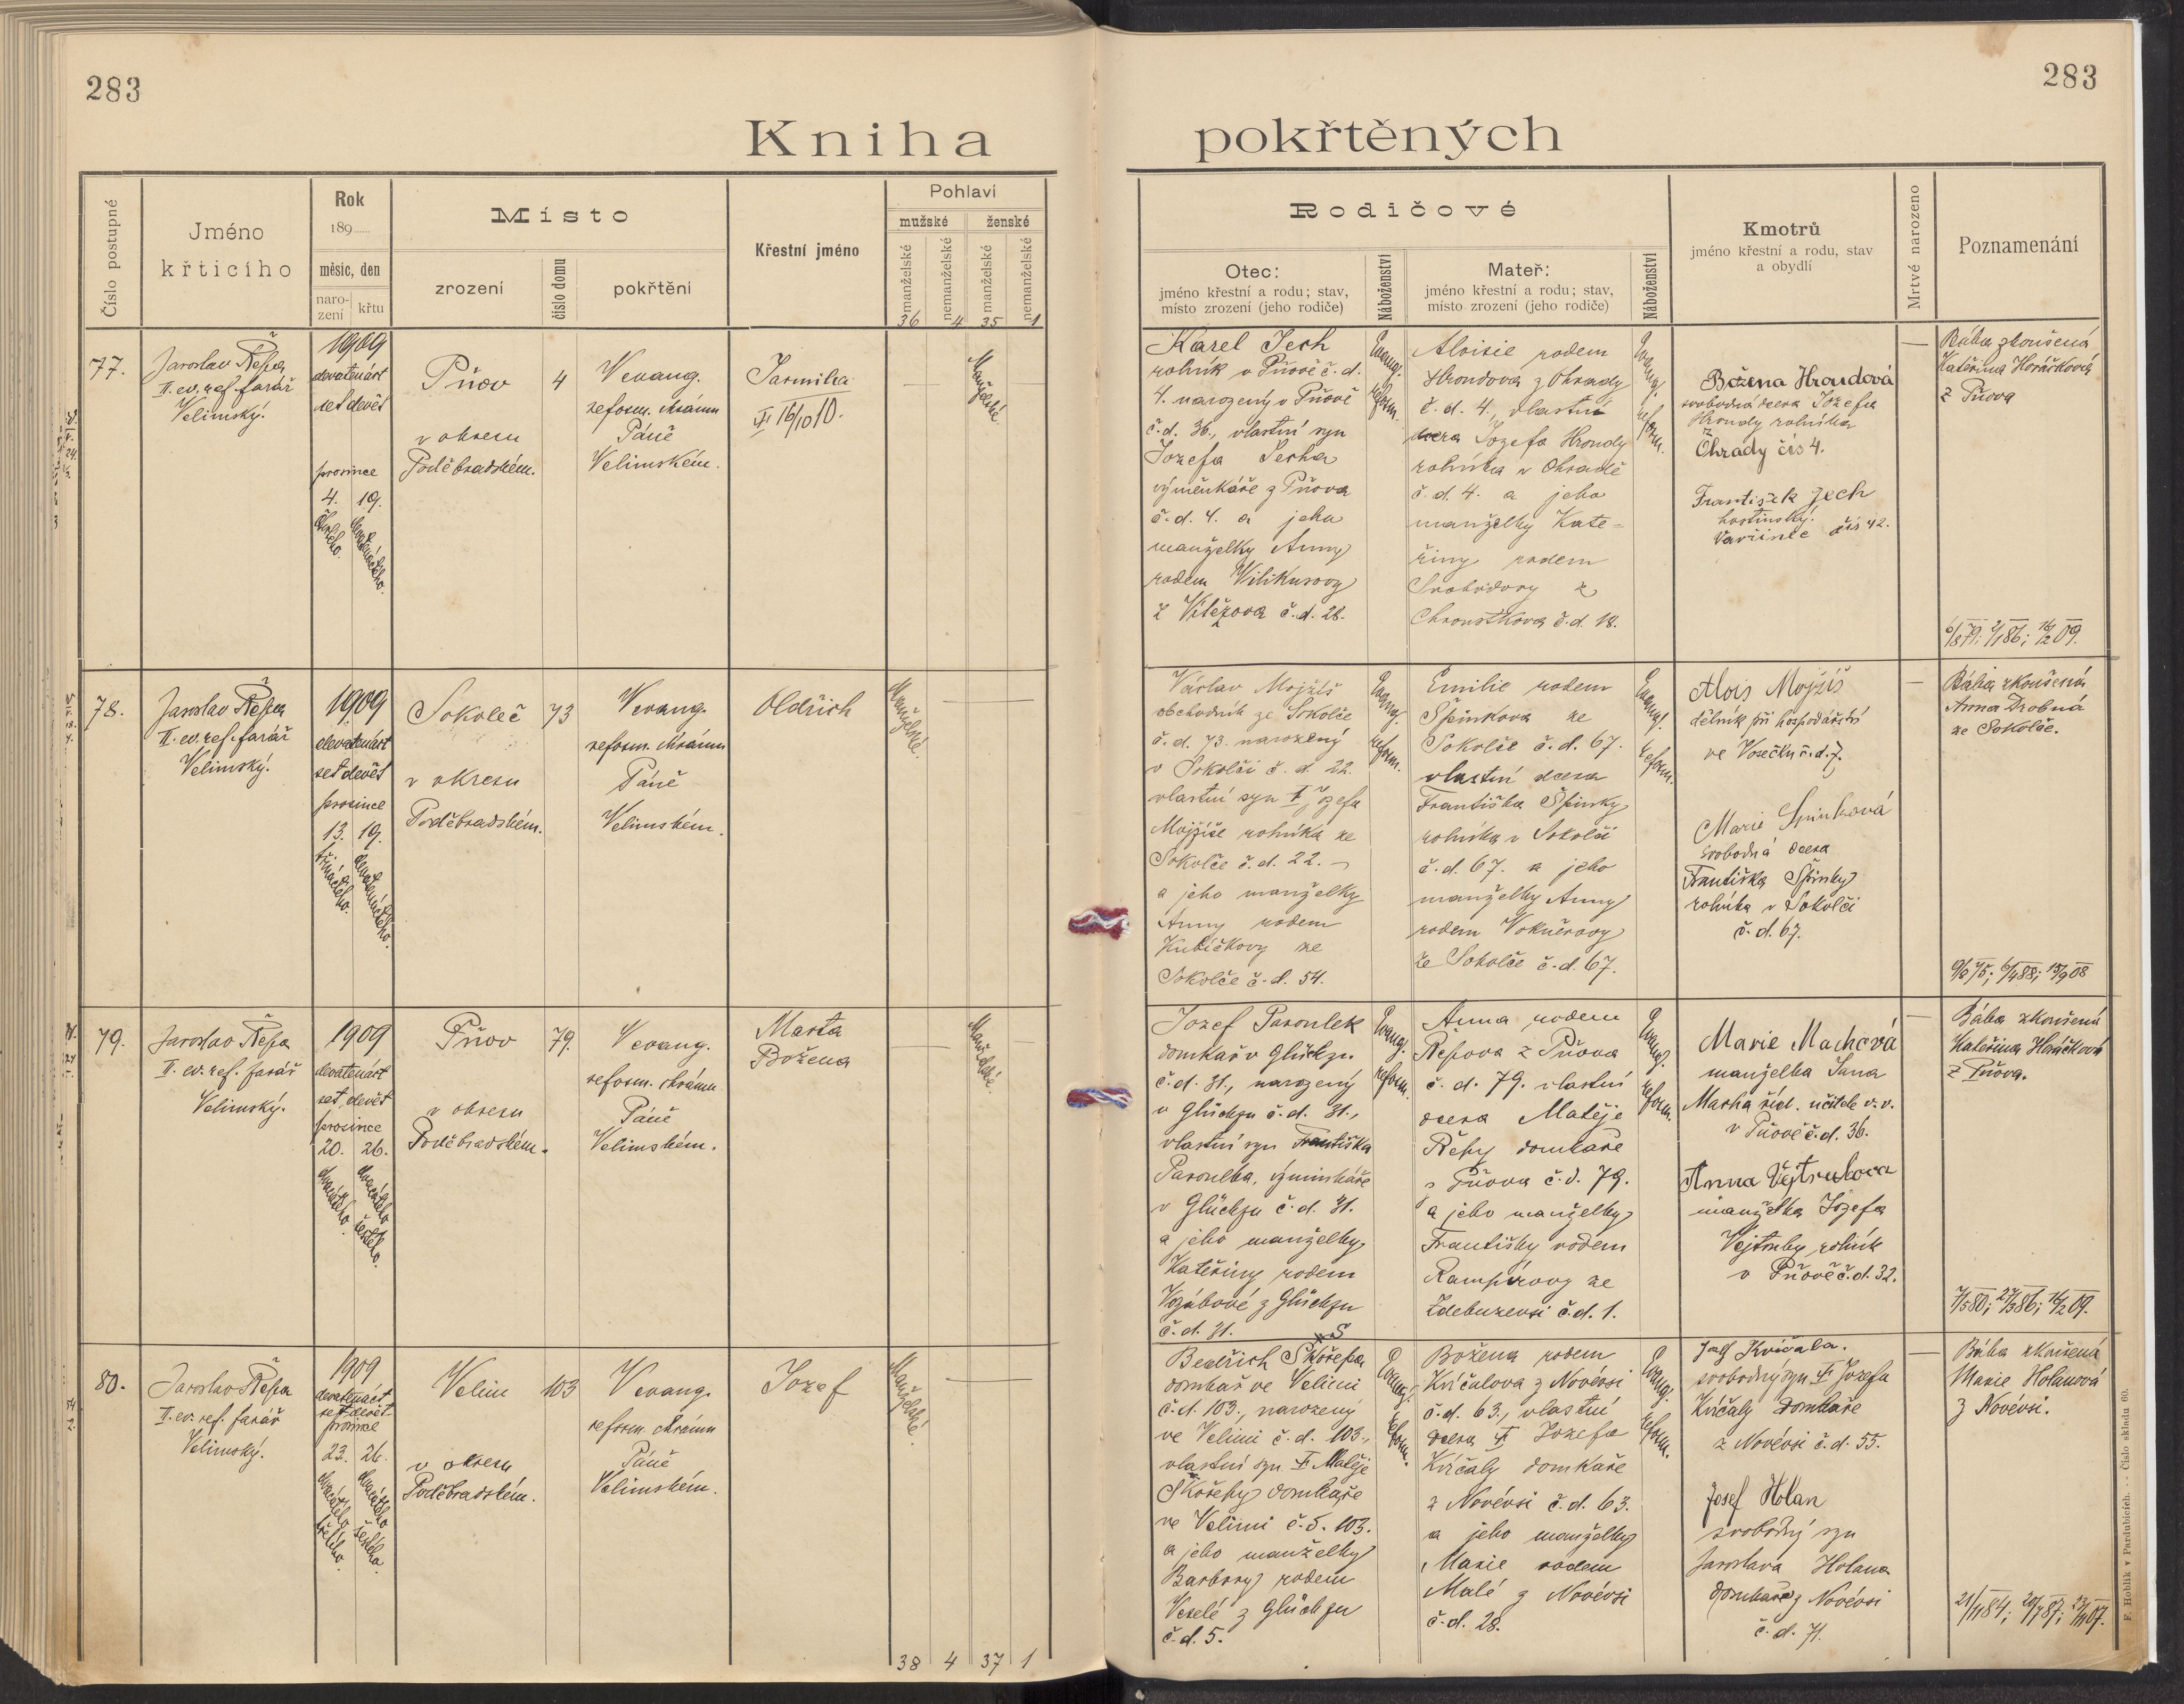 283
283
Kniha pokřtěných
Číslo postupné
Jméno
křticího
Rok
189
měsíc, den
naro-
zení
křtu
Místo
zrození
číslo domu
pokřtění
Křestní jméno
Pohlaví
mužské
ženské
manželské
nemanželské
manželské
nemanželské
36 4 35 1
Rodičové
Otec:
jméno křestní a rodu; stav,
místo zrození (jeho rodiče)
Náboženství
Mateř:
jméno křestní a rodu; stav,
místo zrození (jeho rodiče)
Náboženství
Kmotrů
jméno křestní a rodu, stav
a obydlí
Mrtvé narozeno
Poznamenání
77.
Jaroslav Řepa
II. ev. ref. farář
Velimský.
1909
devatenáct
set devět
prosince
4. 19.
čtvrtého.
devatenáctého.
Pňov
v okresu
Poděbradském.
4
V evang.
reform. chrámu
Páně
Velimském.
Jarmila
16/10 10.
Manželské.
Karel Jech
rolník v Pňově č. d.
4. narozený v Pňově
č. d. 36., vlastní syn
Jozefa Jecha
výměnkáře z Pňova
č. d. 4. a jeho
manželky Anny
rodem Vilikusovy
z Vítězova č. d. 28.
Evang.
reform.
Aloisie rodem
Hroudova z Ohrady
č. d. 4., vlastní
dcera Jozefa Hroudy
rolníka v Ohradě
č. d. 4. a jeho
manželky Kate-
řiny rodem
Svobodovy z
Chroustkova č. d. 18.
Evang.
reform.
Božena Hroudová
svobodná dcera Jozefa
Hroudy rolníka
z
Ohrady čís 4.
František Jech
hostinský.
čís 42.
Bába zkoušená
Kateřina Horáčková
z Pňova
6/8 79; 2/1 86; 16/2 09.
78.
Jaroslav Řepa
II. ev. ref. farář
Velimský.
1909
devatenáct
set devět
prosince
13. 19.
třináctého.
devatenáctého.
Sokoleč
v okresu
Poděbradském.
73
V evang.
reform. chrámu
Páně
Velimském.
Oldřich
Manželské.
Václav Mojžíš
obchodník ze Sokolče
č. d. 73. narozený
v Sokolči č. d. 22.
vlastní syn † Jozefa
Mojžíše rolníka ze
Sokolče č. d. 22.
a jeho manželky
Anny rodem
Kubíčkovy ze
Sokolče č. d. 54.
Evang.
reform.
Emilie rodem
Špinkova ze
Sokolče č. d. 67.
vlastní dcera
Františka Špinky
rolníka v Sokolči
č. d. 67. a jeho
manželky Anny
rodem Vokněrovy
ze Sokolče č. d. 67.
Evang.
reform.
Alois Mojžíš
dělník při hospodářství
ve Vosečku č. d. 7.
Marie Špinková
svobodná dcera
Františka Špinky
rolníka v Sokolči
č. d. 67.
Bába zkoušená
Anna Drobná
ze Sokolče.
79.
Jaroslav Řepa
II. ev. ref. farář
Velimský.
1909
devatenáct
set devět
prosince
20. 26.
dvacátého.
dvacátého
šestého.
Pňov
v okresu
Poděbradském.
79.
V evang.
reform. chrámu
Páně
Velimském.
Marta
Božena
Manželské.
Jozef Paroulek
domkář v Glückzu
č. d. 31., narozený
v Glückzu č. d. 31.,
vlastní syn Františka
Paroulka, výminkáře
v Glückzu č. d. 31.
a jeho manželky
Kateřiny rodem
Vrzábové z Glückzu
č. d. 31.
Evang.
reform.
Anna rodem
Řepova z Pňova
č. d. 79. vlastní
dcera Matěje
Řepy domkáře
z Pňova č. d. 79.
a jeho manželky
Františky rodem
Rampírovy ze
Zdebuzevsi č. d. 1.
Evang.
reform.
Marie Machová
manželka Jana
Macha říd. učitele v. v.
v Pňově č. d. 36.
Anna Vejtrubova
manželka Jozefa
Vejtruby rolník
v Pňově č. d. 32.
Bába zkoušená
Kateřina Horáčková
z Pňova.
7/5 80; 27/3 86; 16/2 09.
80.
Jaroslav Řepa
II. ev. ref. farář
Velimský.
1909
devatenáct
set devět
prosince
23. 26.
dvacátého
třetího.
dvacátého
šestého.
Velim
v okresu
Poděbradském.
103
V evang.
reform. chrámu
Páně
Velimském.
Jozef
Manželské.
Bedřich Skořepa
domkář ve Velimi
č. d. 103., narozený
ve Velimi č. d. 103.,
vlastní syn † Matěje
Skořepy domkáře
ve Velimi č. d. 103.
a jeho manželky
Barbory rodem
Veselé z Glückzu
č. d. 5.
Evang.
reform.
Božena rodem
Kvíčalova z Novévsi
č. d. 63., vlastní
dcera † Jozefa
Kvíčaly domkáře
z Novévsi č. d. 63.
a jeho manželky
Marie rodem
Malé z Novévsi
č. d. 28.
Evang.
reform.
Josef Kvíčala.
svobodný syn † Jozefa
Kvíčaly domkáře
z Novévsi č. d. 55.
Josef Holan
svobodný syn
Jaroslava Holana
domkáře z Novévsi
č. d. 71.
Bába zkoušená
Marie Holanová
z Novévsi.
21/11 84; 20/7 87; 23/11 07.
38 4 37 1
F. Hoblík v Pardubicích. - Číslo skladu 60.